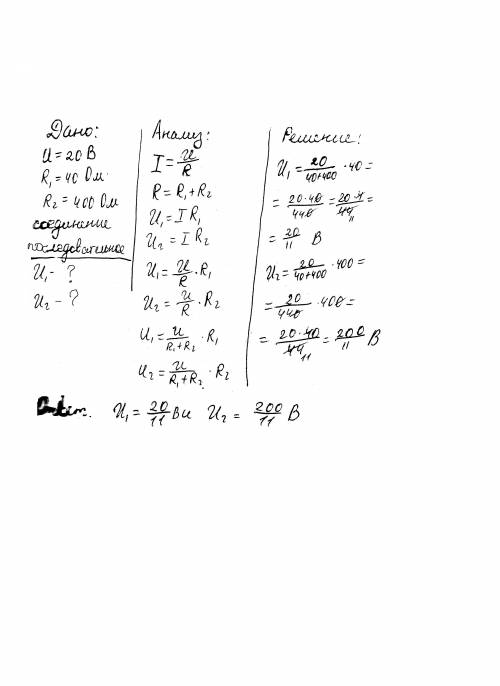 Дано:
U = 20 В
R₁ = 40 Ом
R₂ = 400 Ом
соединение
последовательное
U₁ - ?
U₂ - ?
Анализ:
I = U/R
R = R₁ + R₂
U₁ = I R₁
U₂ = I R₂
U₁ = U/R · R₁
U₂ = U/R · R₂
U₁ = U/(R₁+R₂) · R₁
U₂ = U/(R₁+R₂) · R₂
Решение:
U₁ = 20/(40+400) · 40 =
= 20·40/440 = 20·4/44 11 =
= 20/11 В
U₂ = 20/(40+400) · 400 =
= 20/440 · 400 =
= 20·40/44 11 = 200/11 В
Ответ. U₁ = 20/11 В и U₂ = 200/11 В